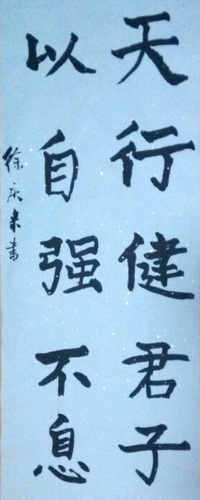 天行健君子
以自强不息
徐庆来书